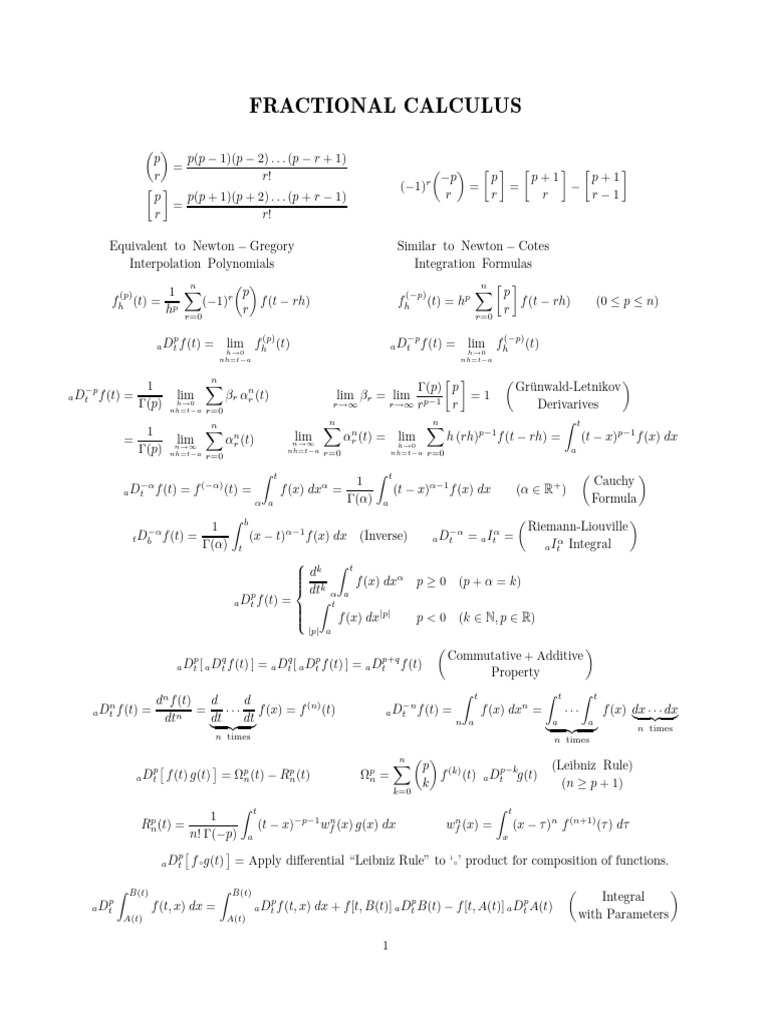 FRACTIONAL CALCULUS
\binom{p}{r} = \frac{p(p-1)(p-2)\ldots(p-r+1)}{r!}
\left[{p \atop r}\right] = \frac{p(p+1)(p+2)\ldots(p+r-1)}{r!}
(-1)^r \binom{-p}{r} = \left[{p \atop r}\right] = \left[{p+1 \atop r}\right] - \left[{p+1 \atop r-1}\right]
Equivalent to Newton − Gregory
Interpolation Polynomials
Similar to Newton − Cotes
Integration Formulas
f_h^{(p)}(t) = \frac{1}{h^p} \sum_{r=0}^{n} (-1)^r \binom{p}{r} f(t-rh)
f_h^{(-p)}(t) = h^p \sum_{r=0}^{n} \left[{p \atop r}\right] f(t-rh) (0 ≤ p ≤ n)
{}_aD_t^p f(t) = \lim_{h→0 \atop nh=t-a} f_h^{(p)}(t)
{}_aD_t^{-p} f(t) = \lim_{h→0 \atop nh=t-a} f_h^{(-p)}(t)
{}_aD_t^{-p} f(t) = \frac{1}{Γ(p)} \lim_{h→0 \atop nh=t-a} \sum_{r=0}^{n} β_r α_r^n(t) \lim_{r→∞} β_r = \lim_{r→∞} \frac{Γ(p)}{r^{p-1}} \left[{p \atop r}\right] = 1 (Grünwald-Letnikov
Derivarives)
= \frac{1}{Γ(p)} \lim_{n→∞ \atop nh=t-a} \sum_{r=0}^{n} α_r^n(t) \lim_{n→∞ \atop nh=t-a} \sum_{r=0}^{n} α_r^n(t) = \lim_{h→0 \atop nh=t-a} \sum_{r=0}^{n} h (rh)^{p-1} f(t-rh) = \int_a^t (t-x)^{p-1} f(x) dx
{}_aD_t^{-α} f(t) = f^{(-α)}(t) = {}_α\int_a^t f(x) dx^α = \frac{1}{Γ(α)} \int_a^t (t-x)^{α-1} f(x) dx (α ∈ ℝ^+) (Cauchy
Formula)
{}_tD_b^{-α} f(t) = \frac{1}{Γ(α)} \int_t^b (x-t)^{α-1} f(x) dx (Inverse) {}_aD_t^{-α} = {}_aI_t^α = (Riemann-Liouville
{}_aI_t^α Integral)
{}_aD_t^p f(t) = { \frac{d^k}{dt^k} {}_α\int_a^t f(x) dx^α p ≥ 0 (p + α = k)
{}_{|p|}\int_a^t f(x) dx^{|p|} p < 0 (k ∈ ℕ, p ∈ ℝ)
{}_aD_t^p[ {}_aD_t^q f(t) ] = {}_aD_t^q[ {}_aD_t^p f(t) ] = {}_aD_t^{p+q} f(t) (Commutative + Additive
Property)
{}_aD_t^n f(t) = \frac{d^n f(t)}{dt^n} = \underbrace{\frac{d}{dt} \cdots \frac{d}{dt}}_{n times} f(x) = f^{(n)}(t)
{}_aD_t^{-n} f(t) = {}_n\int_a^t f(x) dx^n = \underbrace{\int_a^t \cdots \int_a^t}_{n times} f(x) \underbrace{dx \cdots dx}_{n times}
{}_aD_t^p [ f(t) g(t) ] = Ω_n^p(t) − R_n^p(t) Ω_n^p = \sum_{k=0}^{n} \binom{p}{k} f^{(k)}(t) {}_aD_t^{p-k} g(t) (Leibniz Rule)
(n ≥ p + 1)
R_n^p(t) = \frac{1}{n! Γ(-p)} \int_a^t (t-x)^{-p-1} w_f^n(x) g(x) dx w_f^n(x) = \int_x^t (x-τ)^n f^{(n+1)}(τ) dτ
{}_aD_t^p [ f∘g(t) ] = Apply differential “Leibniz Rule” to ‘∘’ product for composition of functions.
{}_aD_t^p \int_{A(t)}^{B(t)} f(t, x) dx = \int_{A(t)}^{B(t)} {}_aD_t^p f(t, x) dx + f[t, B(t)] {}_aD_t^p B(t) − f[t, A(t)] {}_aD_t^p A(t) (Integral
with Parameters)
1